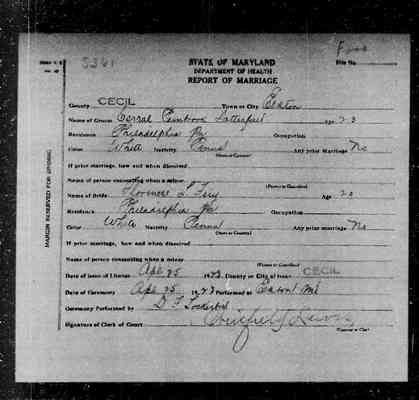 STATE OF MARYLAND
DEPARTMENT OF HEALTH
REPORT OF MARRIAGE
File No.
County CECIL Town or City Elkton
Name of Groom Age 23
Residence Philadelphia Pa Occupation
Color White Nativity Penna Any prior Marriage No
(State or Country)
If prior marriage, how and when dissolved
Name of person consenting when a minor
(Parent or Guardian)
Name of Bride Florence L Age 20
Residence Philadelphia Pa Occupation
Color White Nativity Penna Any prior marriage No
(State or Country)
If prior marriage, how and when dissolved
Name of person consenting when a minor
(Parent or Guardian)
Date of issue of License Apl 25 1923 County or City of issue CECIL
Date of Ceremony Apl 25 1923 Performed at
Ceremony Performed by
Signature of Clerk of Court
MARGIN RESERVED FOR BINDING